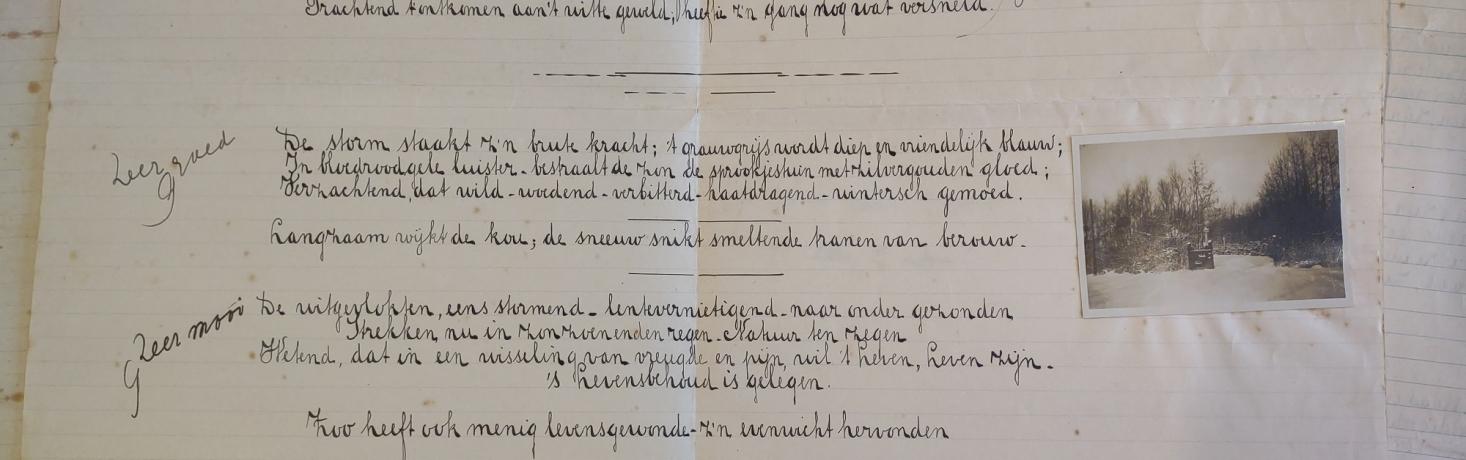 Trachtend t'ontkomen aan't witte geweld, heeft ie z'n gang nog wat versneld.
Zeer goed
De storm staakt z'n brute kracht; 't grauwgrijs wordt diep en vriendelijk blauw;
In bloedroodgele luister - bestraalt de zon de sprookjestuin met zilvergouden gloed;
Verzachtend, dat wild - woedend - verbitterd - haatdragend - wintersch gemoed.
Langzaam wijkt de kou; de sneeuw snikt smeltende tranen van berouw.
Zeer mooi
De uitgevlokten, eens stormend - lentevernietigend - naar onder gezonden
Trekken nu in zonzoenenden regen - Natuur ten zegen
Wetend, dat in een wisseling van vreugde en pijn, wil 't Leven, Leven zijn.
's Levensbehoud is gelegen.
Zoo heeft ook menig levensgewonde - z'n evenwicht hervonden